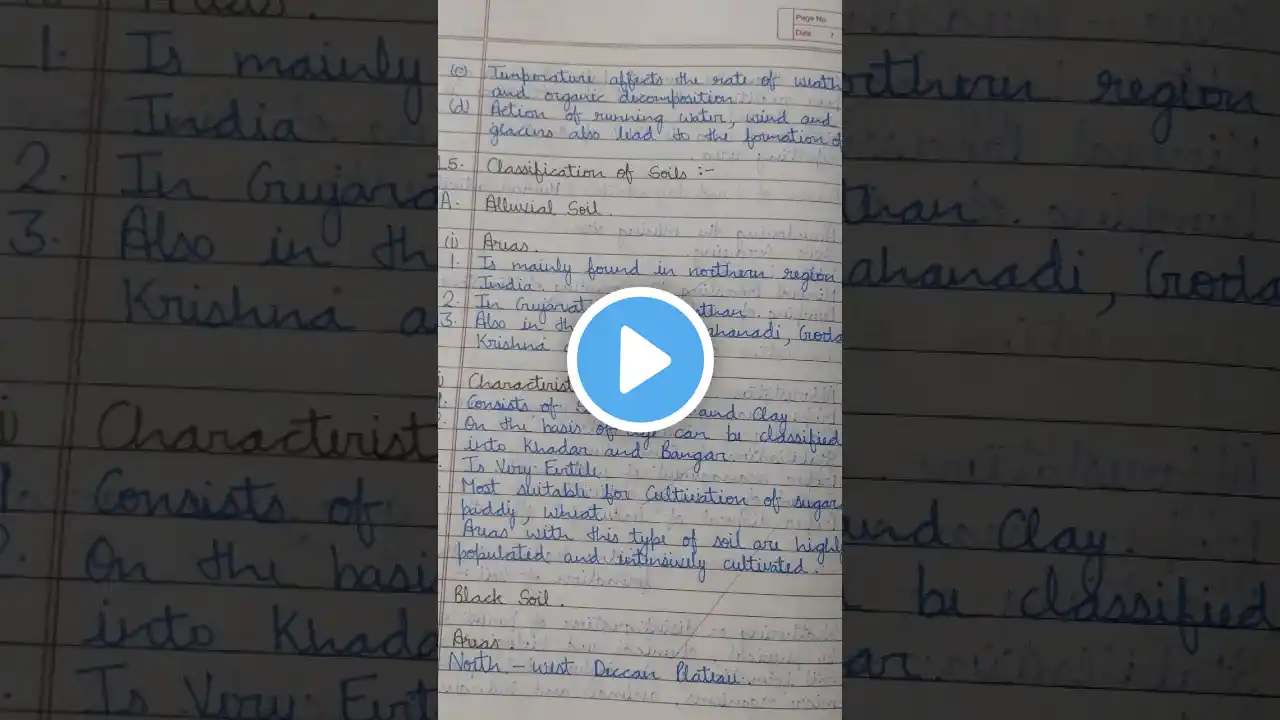 Page No.
Date
(c) Temperature affects the rate of weath
and organic decomposition
(d) Action of running water, wind and
glaciers also lead to the formation of
15. Classification of Soils :-
A. Alluvial Soil.
(i) Areas.
1. Is mainly found in northern region
India
2. In Gujarat than.
3. Also in th ahanadi, Goda
Krishna a
Characterist
Consists of and Clay.
On the basis of age can be classified
into Khadar and Bangar.
Is Very Fertile
Most suitable for Cultivation of sugar
paddy, wheat
Areas with this type of soil are highl
populated and intensively cultivated.
Black Soil.
Areas.
North - west Deccan Plateau.